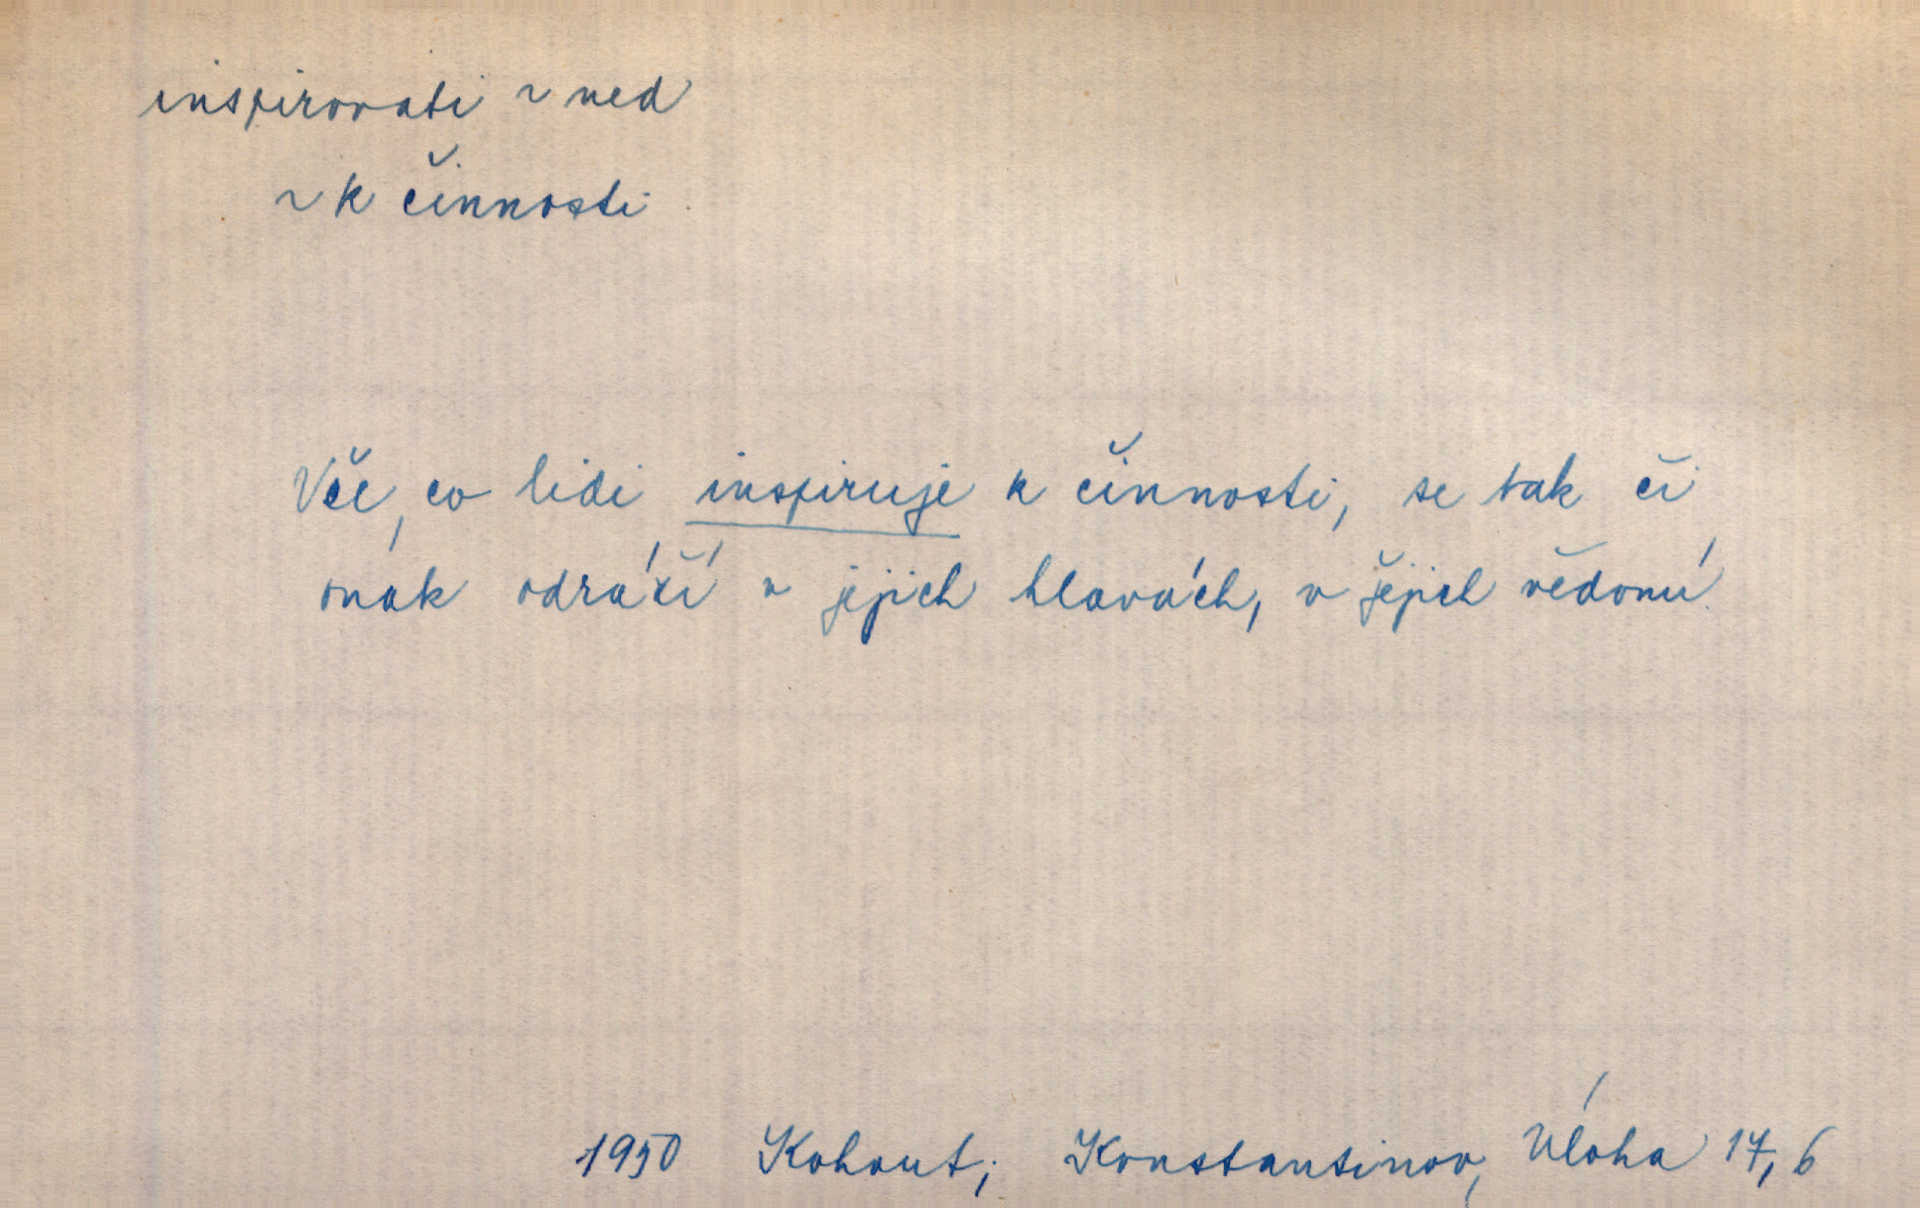 inspirovati ~ ned
~ k činnosti
Vše, co lidi inspiruje k činnosti, se tak či
onak odráží v jejich hlavách, v jejich vědomí.
1950 Kohout; Konstantinov, Úloha 17,6